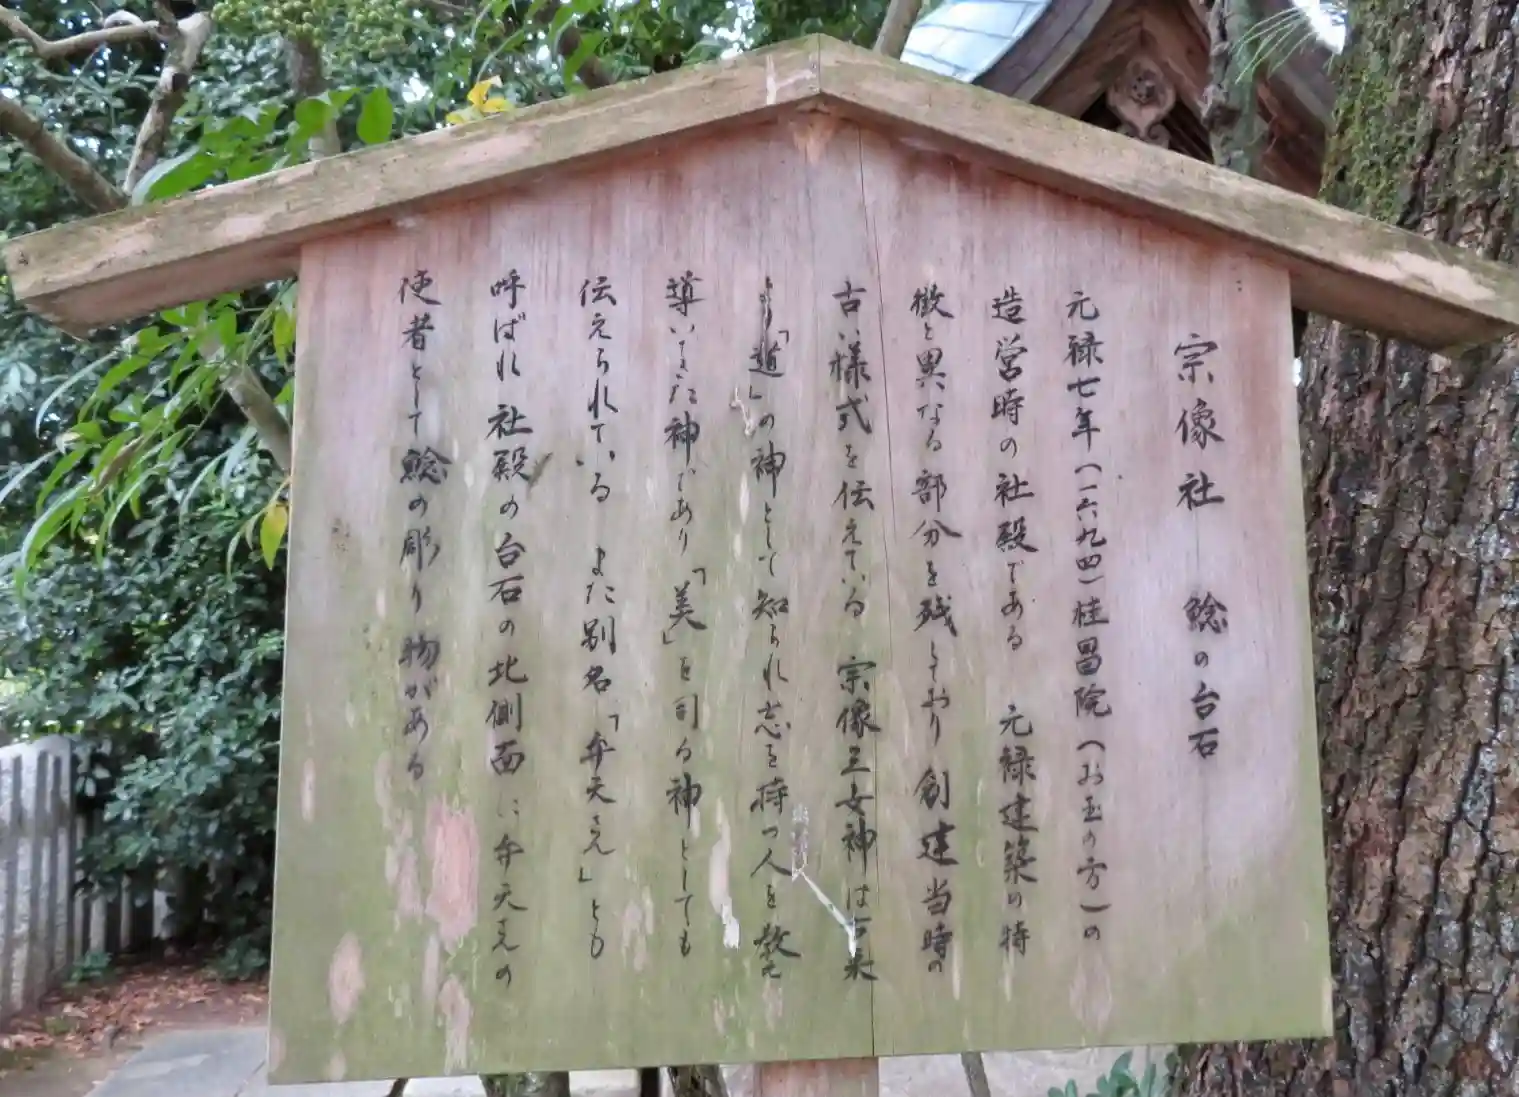 宗像社 鯰の台石
元禄七年(一六九四)桂昌院(お玉の方)の
造営時の社殿である 元禄建築の特
徴と異なる部分を残しており 創建当時の
古い様式を伝えている 宗像三女神は古来
より「道」の神として知られ志を持つ人を教え
導いてきた神であり「美」を司る神としても
伝えられている また別名「弁天さん」とも
呼ばれ 社殿の台石の北側面に弁天さんの
使者として鯰の彫り物がある